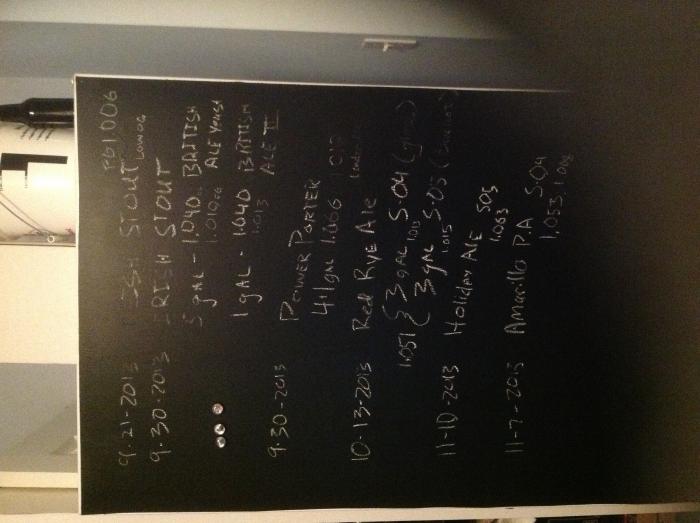 9.21-2013 IRISH STOUT LOWOG FG 1.006
9.30-2013 IRISH STOUT
5 gAL - 1.040 BRITISH
1.010 OG ALE YEAST
1 gAL - 1.040 BRITISH
1.013 ALE II
9.30-2013 POWER PORTER
4.1 gAL 1.066 1.012
10-13-2013 Red Rye Ale
1.051 { 3 gAL S-04
1.013
3 gAL S-05
1.015
11-10-2013 Holiday ALE S05
1.063
11-7-2013 Amarillo PA S04
1.053